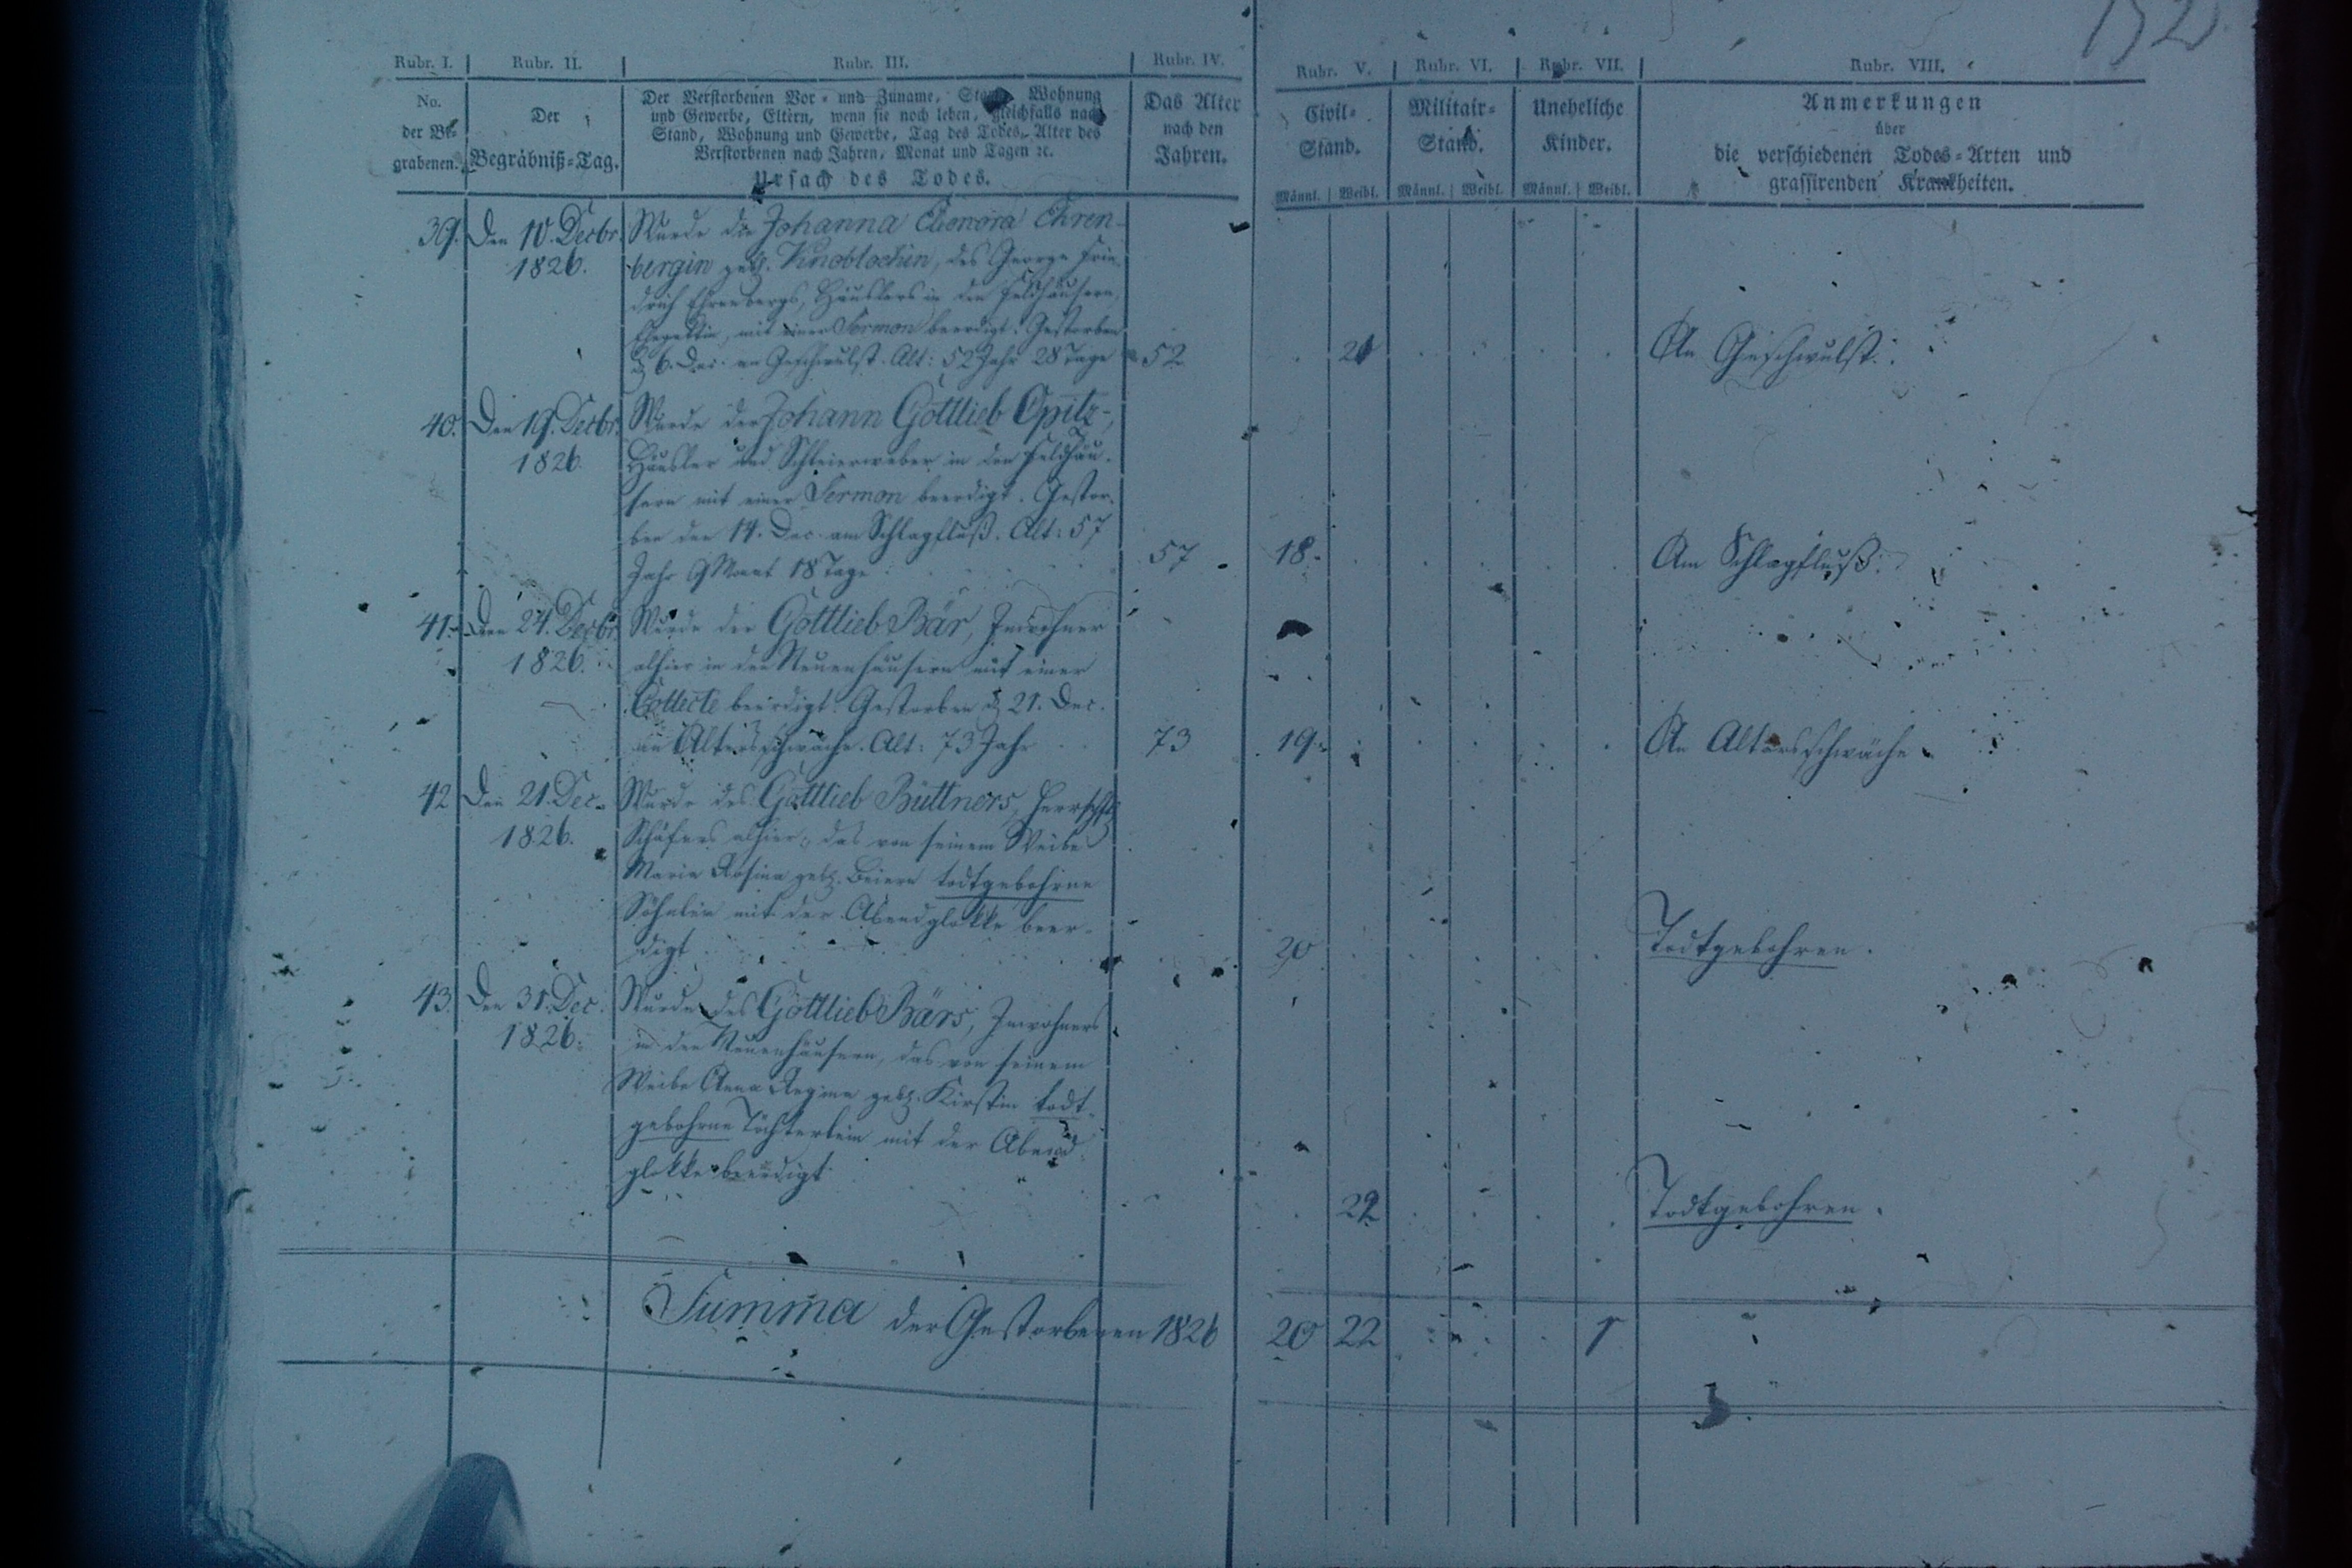 Rubr. I. Rubr. II. Rubr. III. Rubr. IV. Rubr. V. Rubr. VI. Rubr. VII. Rubr. VIII.
No. der Be- grabenen.
Der Begräbniß-Tag.
Der Verstorbenen Vor- und Zuname, Stand, Wohnung
und Gewerbe, Eltern, wenn sie noch leben, gleichfalls nach
Stand, Wohnung und Gewerbe, Tag des Todes, Alter des
Verstorbenen nach Jahren, Monat und Tagen ꝛc.
Ursach des Todes.
Das Alter
nach den
Jahren.
Civil-
Stand.
Männl. Weibl.
Militair-
Stand.
Männl. Weibl.
Uneheliche
Kinder.
Männl. Weibl.
Anmerkungen
über
die verschiedenen Todes-Arten und
grassirenden Krankheiten.
39. Den 10. Decbr. Wurde die Johanna Eleonora Ehren-
1826. bergin geb. Knoblochin, des George Frie-
drich Ehrenbergs, Häuslers in den Feldhäusern,
Ehegattin, mit einer Sermon beerdigt. Gestorben
d. 6. Dec. an Geschwulst. Alt: 52 Jahr 28 Tage 52 21 An Geschwulst.
40. Den 19. Decbr. Wurde der Johann Gottlieb Opitz,
1826. Häusler und Schleierweber in den Feldhäu-
sern mit einer Sermon beerdigt. Gestor-
ben den 14. Dec. am Schlagfluß. Alt: 57
Jahr 9 Monat 18 Tage 57 18. Am Schlagfluß.
41. Den 24. Decbr. Wurde der Gottlieb Bär, Inwohner
1826. alhier in den Neuenhäusern mit einer
Collecte beerdigt. Gestorben d. 21. Dec.
an Altersschwäche. Alt: 73 Jahr 73 19. An Altersschwäche
42 Den 21. Dec. Wurde des Gottlieb Büttners, herrschftl.
1826. Schäfers alhier, das von seinem Weibe
Maria Rosina geb. todtgebohrne
Söhnlein mit der Abendglokke beer-
digt 20 Todtgebohren.
43. Den 31. Dec. Wurde des Gottlieb Bärs, Inwohners
1826. in den Neuenhäusern, das von seinem
Weibe Anna Regina geb. Kirstin todt-
gebohrne Töchterlein mit der Abend-
glokke beerdigt 22 Todtgebohren.
Summa der Gestorbenen 1826 20 22 1